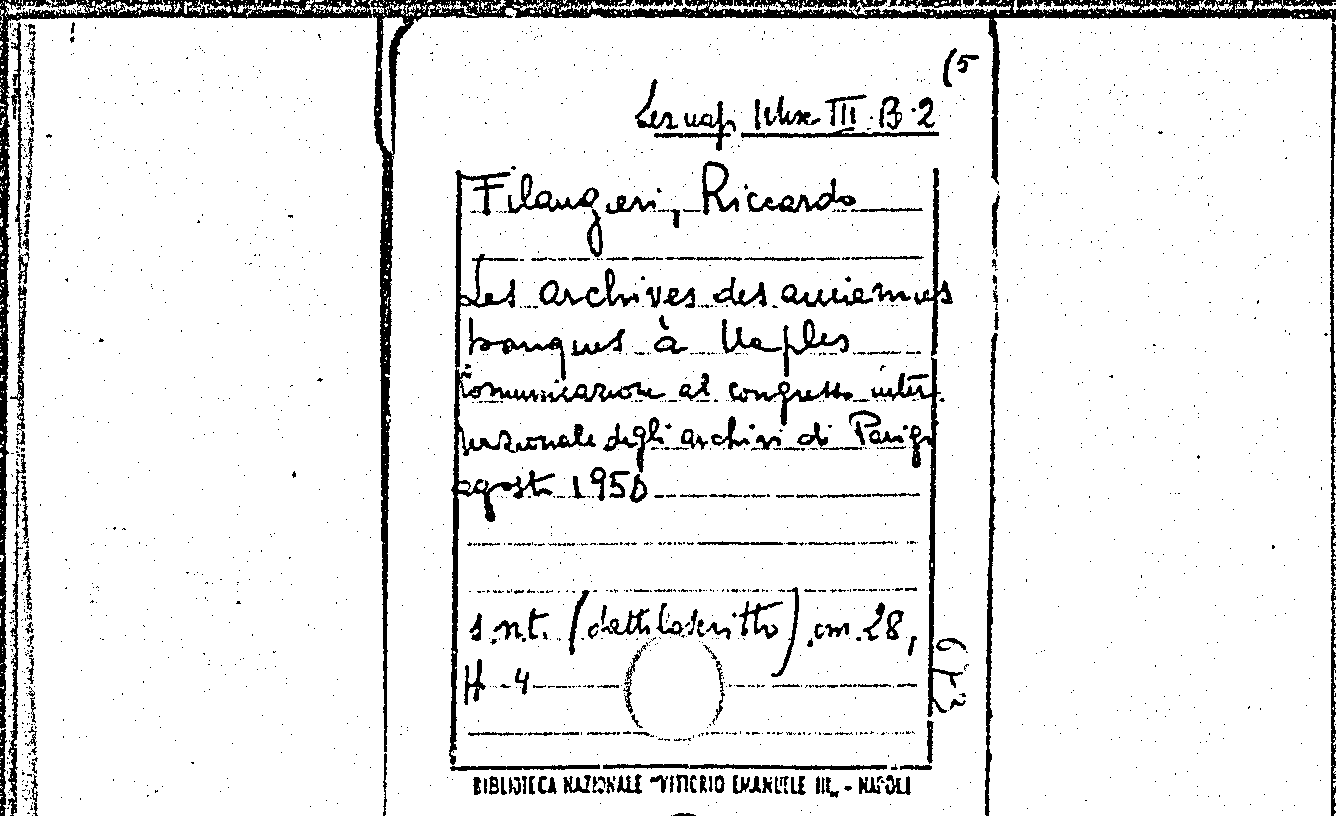 (5
III. B. 2
Filangieri, Riccardo
Les archives des anciennes
banques à Naples
Comunicazione al congresso inter
nazionale degli archivi di Parigi
agosto 1950
s.n.t. (dattiloscritto), cm. 28,
ff. 4
BIBLIOTECA NAZIONALE "VITTORIO EMANUELE III„ - NAPOLI